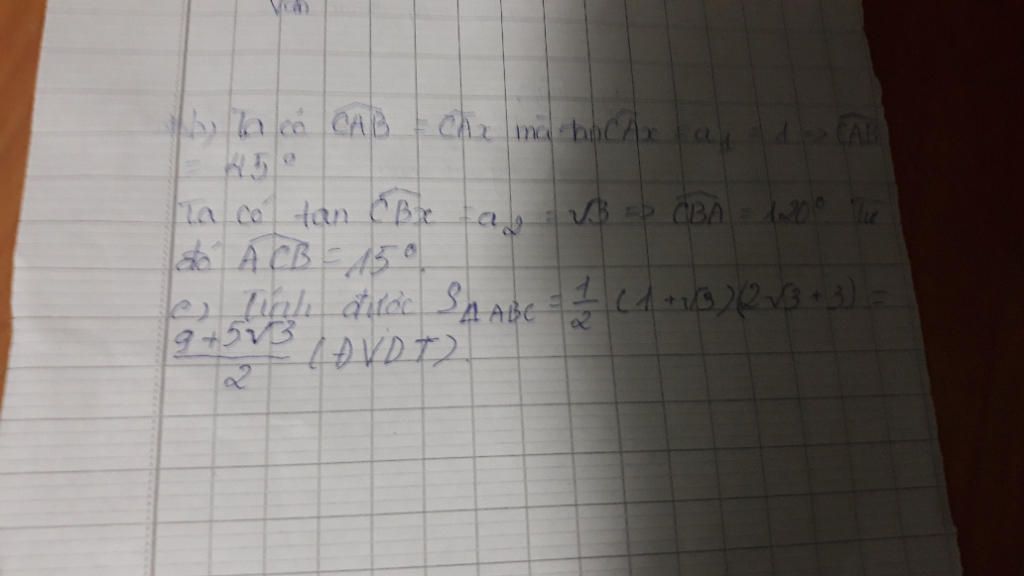 b) Ta có CAB = CAx mà tan CAx = a1 = 1 => CAB
= 45°
Ta có tan CBx = a2 = √3 => CBA = 120° Từ
đó ACB = 15°.
c) Tính được SΔABC = 1/2 (1+√3)(2√3+3) =
9+5√3/2 (ĐVDT).